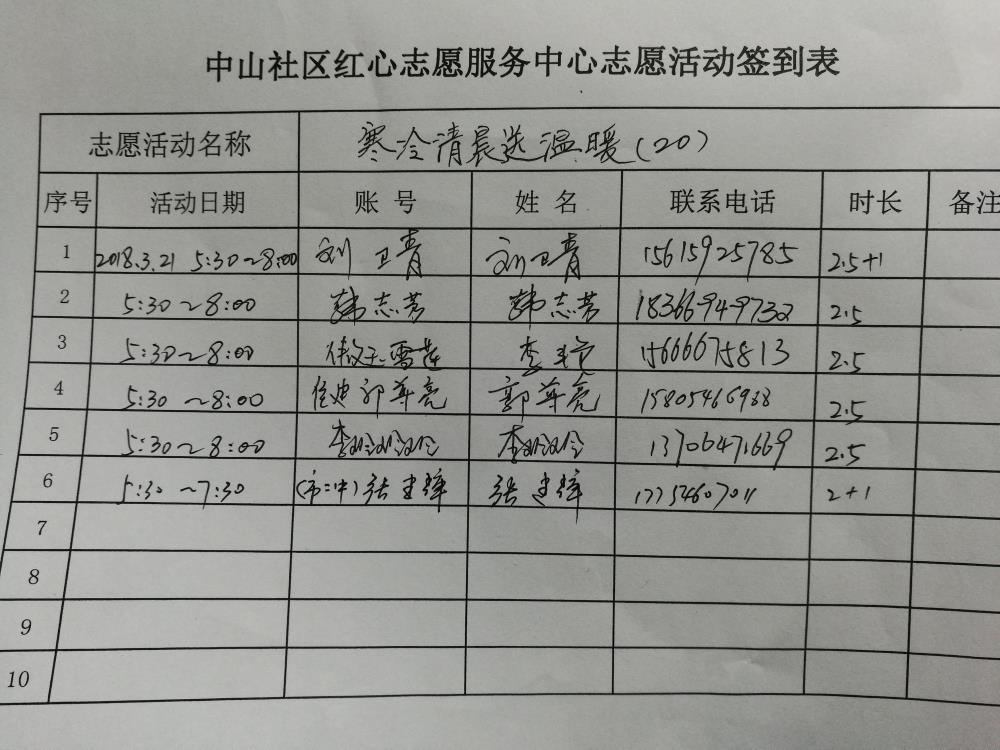 中山社区红心志愿服务中心志愿活动签到表
志愿活动名称 寒冷清晨送温暖(20)
序号 活动日期 账号 姓名 联系电话 时长 备注
1 2018.3.21 5:30~8:00 刘卫青 刘卫青 15615925785 2.5+1
2 5:30~8:00 韩志芳 韩志芳 18366949732 2.5
3 5:30~8:00 李 15666675813 2.5
4 5:30~8:00 郭尊亮 郭尊亮 15805466968 2.5
5 5:30~8:00 2.5
6 5:30~7:30 (市二中)张建祥 张建祥 2+1
7
8
9
10